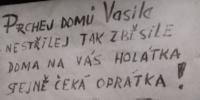 PRCHEJ DOMŮ VASILE
NESTŘÍLEJ TAK ZBĚSILE
DOMA NA VÁS HOLÁTKA
STEJNĚ ČEKÁ OPRÁTKA!